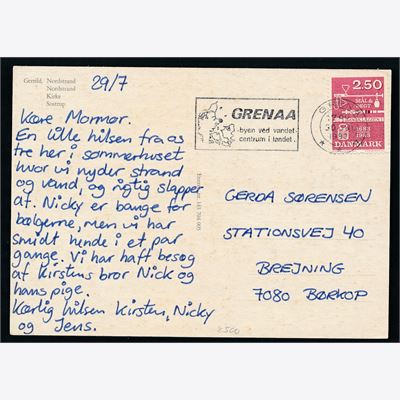 Gerrild, Nordstrand
Nordstrand
Kirke
Sostrup
29/7
Kære Mormor.
En lille hilsen fra os
tre her i sommerhuset
hvor vi nyder strand
og vand, og rigtig slapper
af. Nicky er bange for
bølgerne, men vi har
smidt hende i et par
gange. Vi har haft besøg
af Kirstens bror Nick og
hans pige.
Kærlig hilsen Kirsten, Nicky
og Jens.
GRENAA
-byen ved vandet
centrum i landet.
2.50
MÅL &
VÆGT
1683
1983
DANMARK
GERDA SØRENSEN
STATIONSVEJ 40
BREJNING
7080 BØRKOP